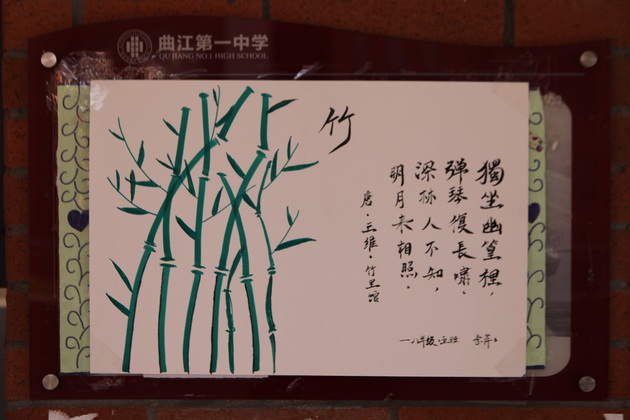 曲江第一中学
QU JIANG NO.1 HIGH SCHOOL
竹
獨坐幽篁裡，
弹琴復長嘯．
深林人不知，
明月来相照．
唐·王维·竹里馆
一八年级五班